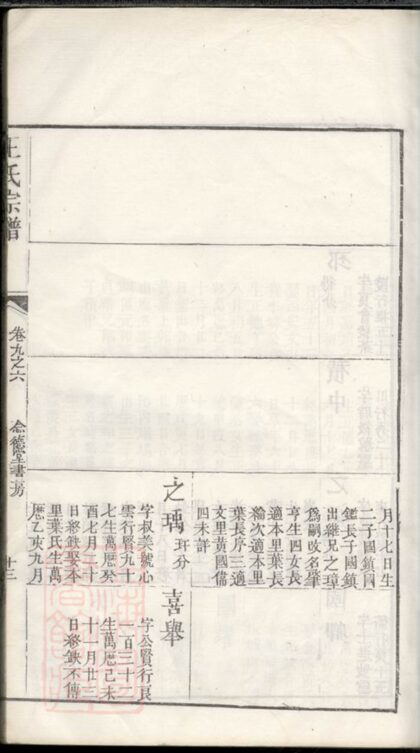 月十七日生
二子國鎮國
鑑長子國鎮
出繼兄之璋
爲嗣改名肇
亨生四女長
適本里葉長
綸次適本里
葉長序三適
文里黄國儒
四未許
之瑀
玗分
字叔美號心
雲行賢九十
七生萬厯癸
酉七月三十
日移鉄娶本
里葉氏生萬
厯乙亥九月
喜舉
字公賢行良
一百三十二
生萬厯己未
十月廿三
日移鉄不傳
王氏宗譜
卷九之六
念德堂書房
十三